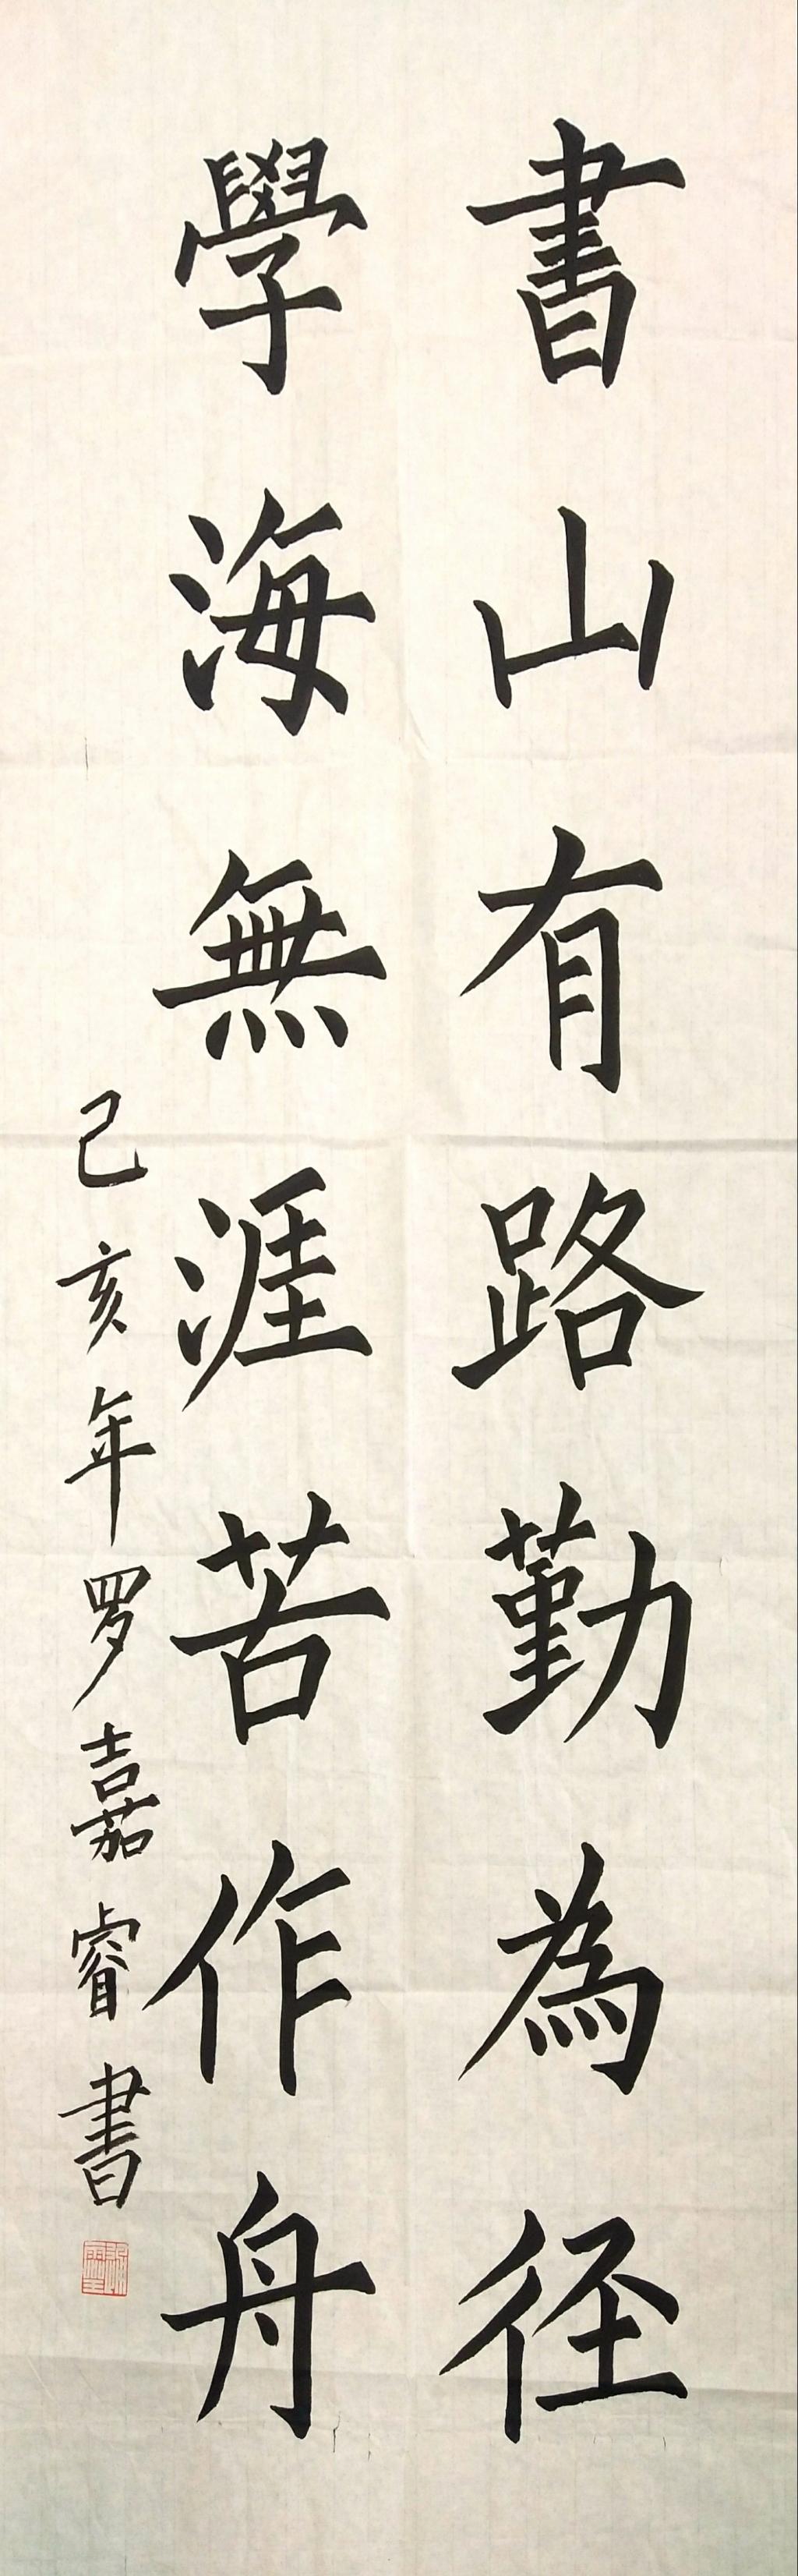 書山有路勤為径
學海無涯苦作舟
己亥年罗嘉睿書